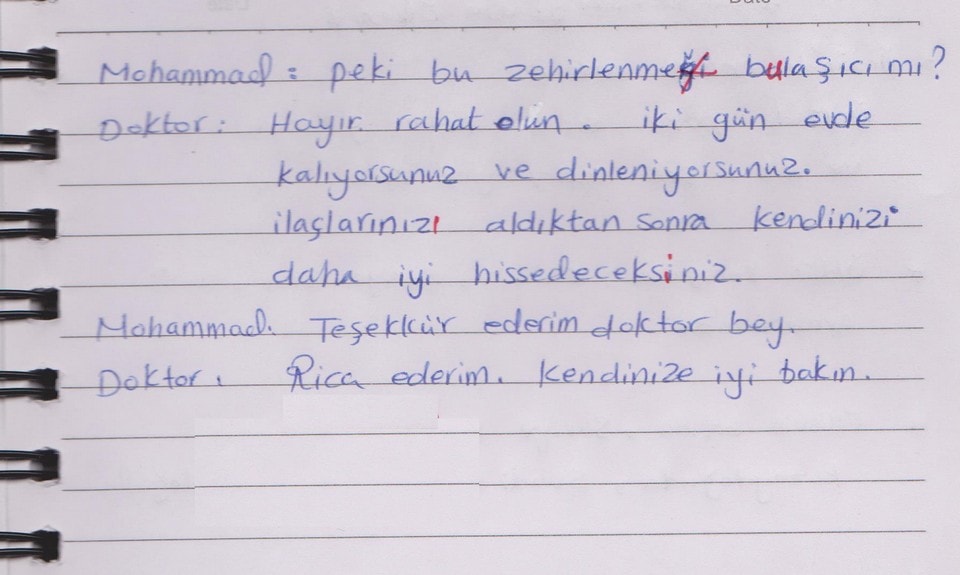 Mohammad: peki bu zehirlenme bulaşıcı mı?
Doktor: Hayır. rahat olun. iki gün evde
kalıyorsunuz ve dinleniyorsunuz.
ilaçlarınızı aldıktan sonra kendinizi
daha iyi hissedeceksiniz.
Mohammad. Teşekkür ederim doktor bey.
Doktor. Rica ederim. Kendinize iyi bakın.